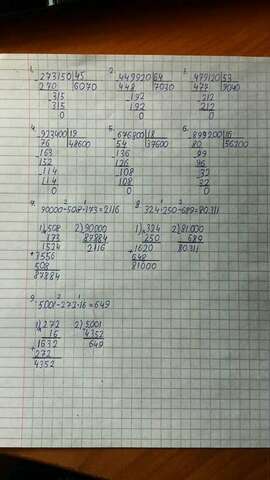 1.
273150 | 45
270 | 6070
315
315
0
2.
449920 | 64
448 | 7030
192
192
0
3.
479120 | 53
477 | 9040
212
212
0
4.
923400 | 19
76 | 48600
163
152
114
114
0
5.
676800 | 18
54 | 37600
136
126
108
108
0
6.
899200 | 16
80 | 56200
99
96
32
32
0
7.
90000-508·173=2116
1) 508
173
1524
+ 3556
508
87884
2) 90000
87884
2116
8.
324·250-689=80311
1) 324
250
+ 1620
648
81000
2) 81000
689
80311
9.
5001-272·16=649
1) 272
16
+ 1632
272
4352
2) 5001
4352
649